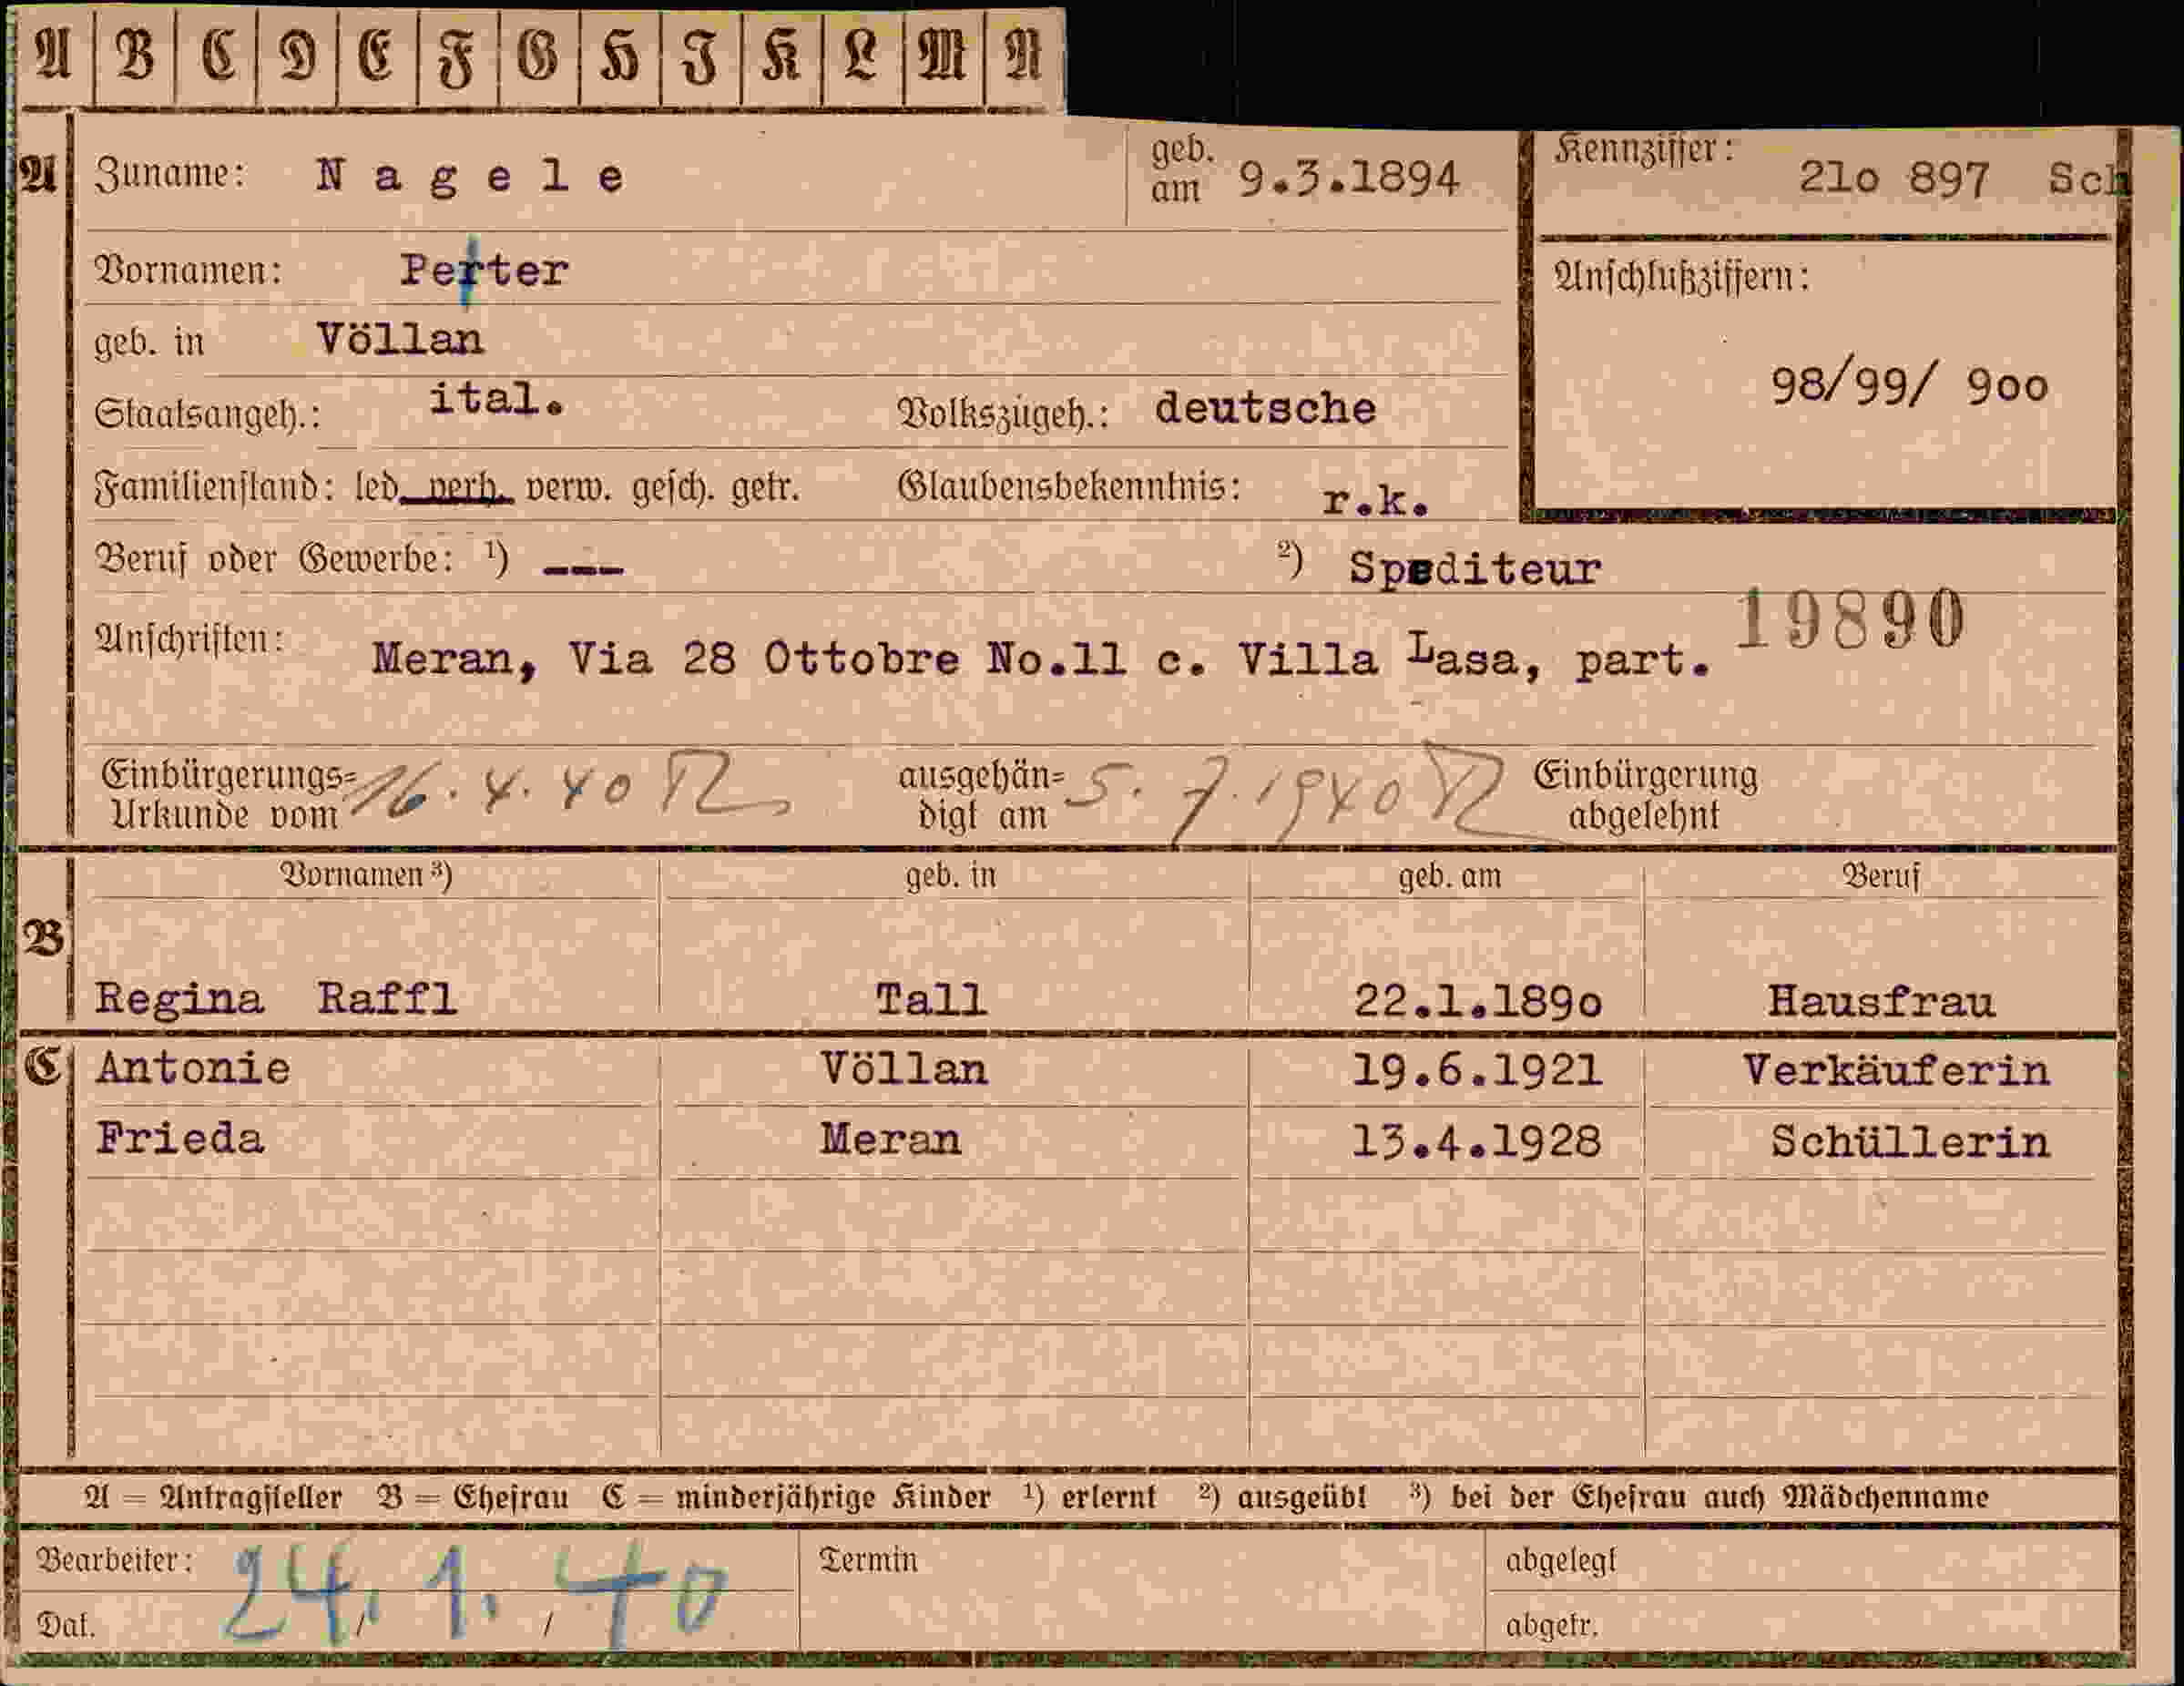 A B C D E F G H J K L M N
A Zuname: Nagele geb. am 9.3.1894 Kennziffer: 21o 897 Sch
Vornamen: Perter Anschlußziffern:
geb. in Völlan
98/99/ 9oo
Staatsangeh.: ital. Volkszugeh.: deutsche
Familienstand: led. verh. verw. gesch. getr. Glaubensbekenntnis: r.k.
Beruf oder Gewerbe: ¹) --- ²) Spediteur
19890
Anschriften: Meran, Via 28 Ottobre No.11 c. Villa Lasa, part.
Einbürgerungs= Urkunde vom 16.4.40 ausgehän= digt am 5.7.1940 Einbürgerung abgelehnt
Vornamen ³) geb. in geb. am Beruf
B
Regina Raffl Tall 22.1.189o Hausfrau
C Antonie Völlan 19.6.1921 Verkäuferin
Frieda Meran 13.4.1928 Schüllerin
A = Antragsteller B = Ehefrau C = minderjährige Kinder ¹) erlernt ²) ausgeübt ³) bei der Ehefrau auch Mädchenname
Bearbeiter: Termin abgelegt
24.1.40
Dat. / / abgetr.